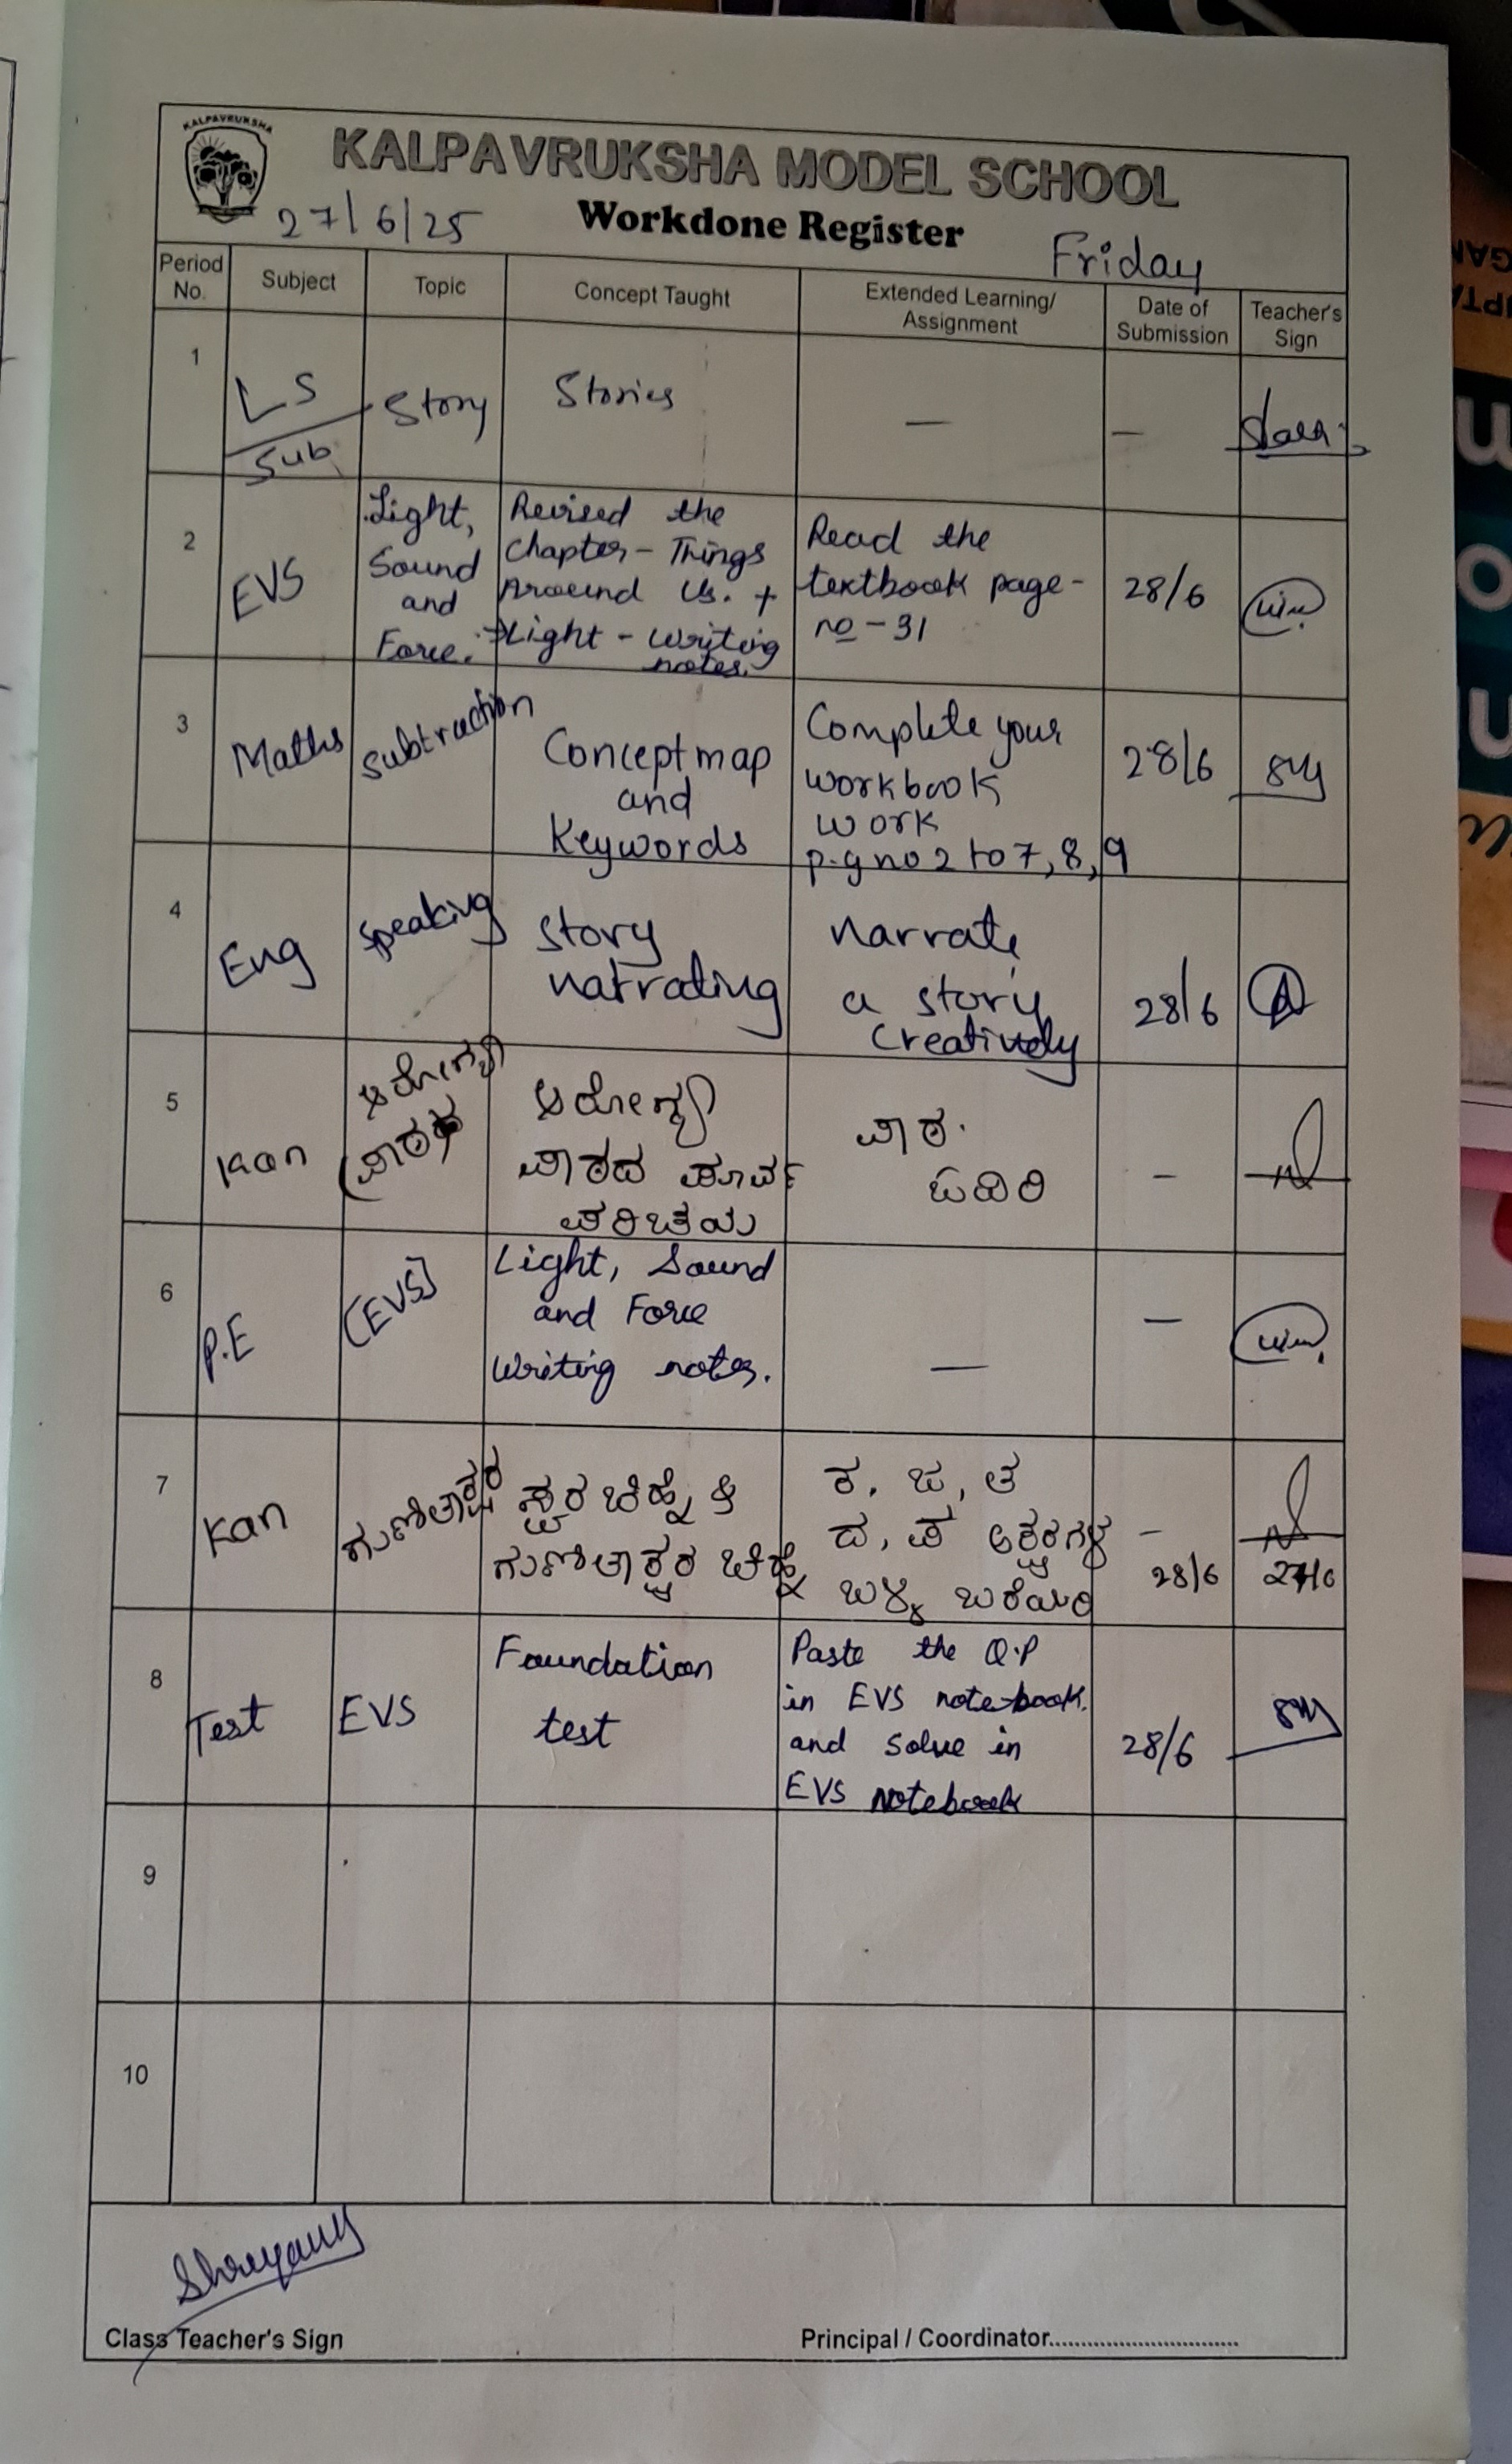 KALPAVRUKSHA
KALPAVRUKSHA MODEL SCHOOL
27/6/25
Workdone Register
Friday
Period No.
Subject
Topic
Concept Taught
Extended Learning/
Assignment
Date of
Submission
Teacher's
Sign
1
LS
Sub
Story
Stories
—
—
2
EVS
Light,
Sound
and
Force.
Revised the
Chapter - Things
Around Us. +
Light - Writing
notes.
Read the
textbook page -
no - 31
28/6
3
Maths
Subtraction
Concept map
and
Keywords
Complete your
workbook
work
p.g no 2 to 7, 8, 9
28/6
4
Eng
Speaking
Story
narrating
narrate
a story
Creatively
28/6
5
Kan
ಆರೋಗ್ಯ
ಪಾಠ
ಆರೋಗ್ಯ
ಪಾಠದ ಪೂರ್ವ
ಪರಿಚಯ
ಪಾಠ.
ಓದಿರಿ
-
6
P.E
(EVS)
Light, Sound
and Force
Writing notes.
—
—
7
Kan
ಗುಣಿತಾಕ್ಷರ
ಸ್ವರ ಚಿಹ್ನೆ &
ಗುಣಿತಾಕ್ಷರ ಚಿಹ್ನೆ
ಠ, ಜ, ತ
ದ, ಪ ಅಕ್ಷರಗಳ
ಬಳ್ಳಿ ಬರೆಯಿರಿ
-
28/6
27/6
8
Test
EVS
Foundation
test
Paste the Q.P
in EVS notebook.
and solve in
EVS Notebook
28/6
9
10
Class Teacher's Sign
Principal / Coordinator..............................